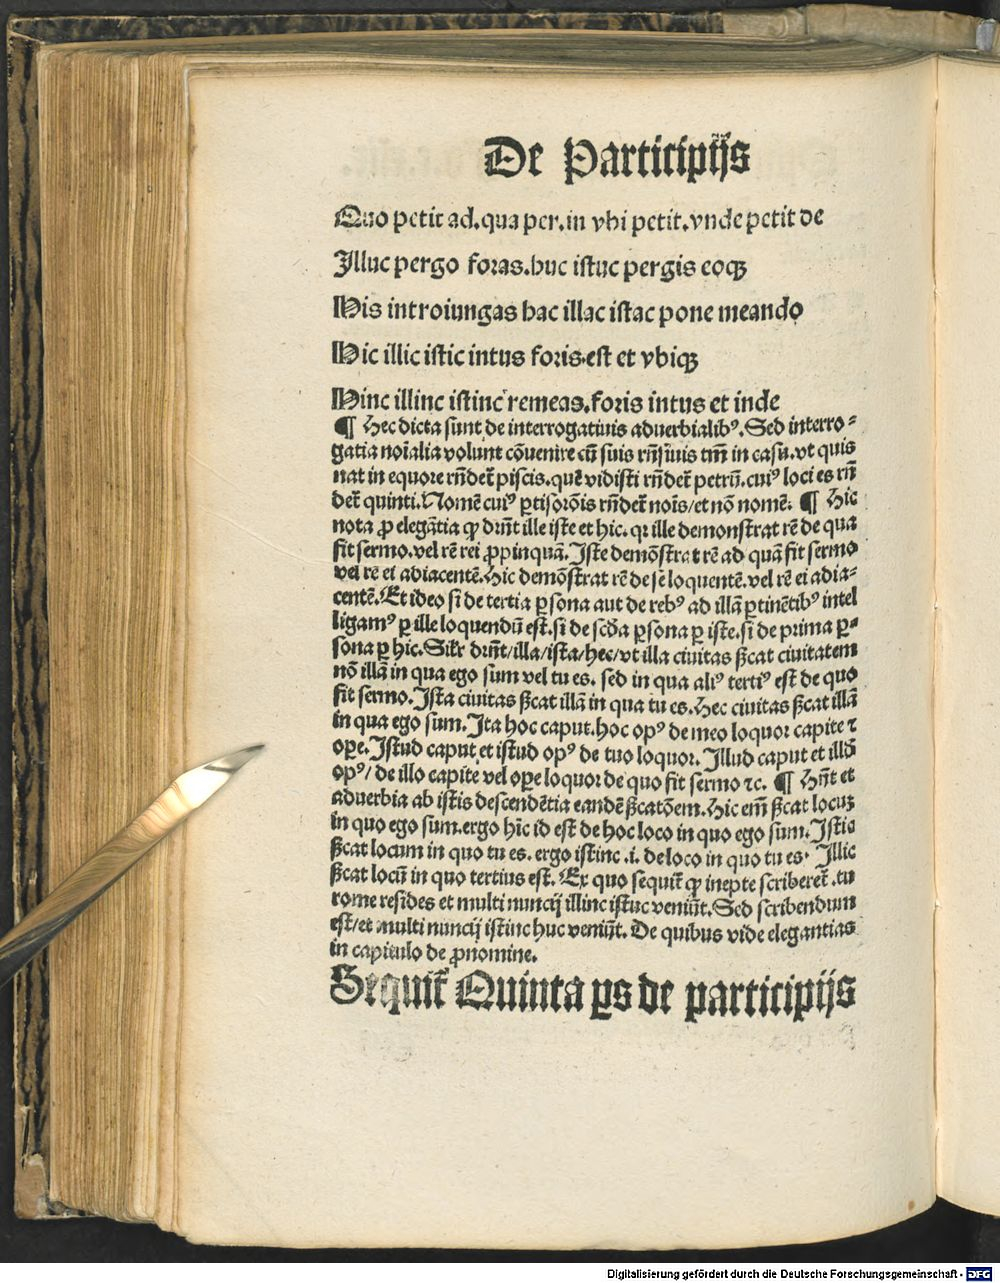 De Participijs
Quo petit ad.qua per.in vbi petit.vnde petit de
Illuc pergo foras.huc istuc pergis eoqꝫ
His introiungas hac illac istac pone meando
Hic illic istic intus foris.est et vbiqꝫ
Hinc illinc istinc remeas.foris intus et inde
¶ Hec dicta sunt de interrogatiuis aduerbialibꝰ. Sed interro-
gatia noi͂alia volunt cōuenire cū suis rn͂siuis tm̄ in casu.vt quis
nat in equore rn͂det̄ piscis.quē vidisti rn͂det̄ petrū.cuiꝰ loci es rn͂
det̄ quinti. Nomē cuiꝰ ꝑtisorōis rn͂det̄ noīs/et nō nomē. ¶ Hic
nota ꝓ elegātia ꝙ drn͂t ille iste et hic. qr ille demonstrat rē de qua
fit sermo.vel rē rei ꝓpinquā. Iste demōstrat rē ad quā fit sermo
vel rē ei adiacentē. Hic demōstrat rē de se loquentē.vel rē ei adia-
centē. Et ideo si de tertia ꝑsona aut de rebꝰ ad illā ꝑtinētibꝰ intel
ligamꝰ ꝑ ille loquendū est.si de scd̄a ꝑsona ꝑ iste.si de prima ꝑ-
sona ꝑ hic. Sil̄r drn͂t/illa/ista/hec/vt illa ciuitas ẞcat ciuitatem
nō illā in qua ego sum vel tu es. sed in qua aliꝰ tertiꝰ est de quo
fit sermo. Ista ciuitas ẞcat illā in qua tu es. Hec ciuitas ẞcat illā
in qua ego sum. Ita hoc caput.hoc opꝰ de meo loquor capite ⁊
oꝑe. Istud caput et istud opꝰ de tuo loquor. Illud caput et illd̄
opꝰ/ de illo capite vel oꝑe loquor de quo fit sermo ⁊c. ¶ Hn͂t et
aduerbia ab istis descendētia eandē ẞcatōem. Hic em̄ ẞcat locuꝫ
in quo ego sum.ergo hīc id est de hoc loco in quo ego sum. Istic
ẞcat locum in quo tu es. ergo istinc .i. de loco in quo tu es. Illic
ẞcat locū in quo tertius est. Ex quo sequit̄ ꝙ inepte scriberet̄ .tu
rome resides et multi nuncij illinc istuc veniūt. Sed scribendum
est/et multi nuncij istinc huc veniūt. De quibus vide elegantias
in capitulo de ꝓnomine.
Sequit̄ Quinta ꝑs de participijs
Digitalisierung gefördert durch die Deutsche Forschungsgemeinschaft - DFG